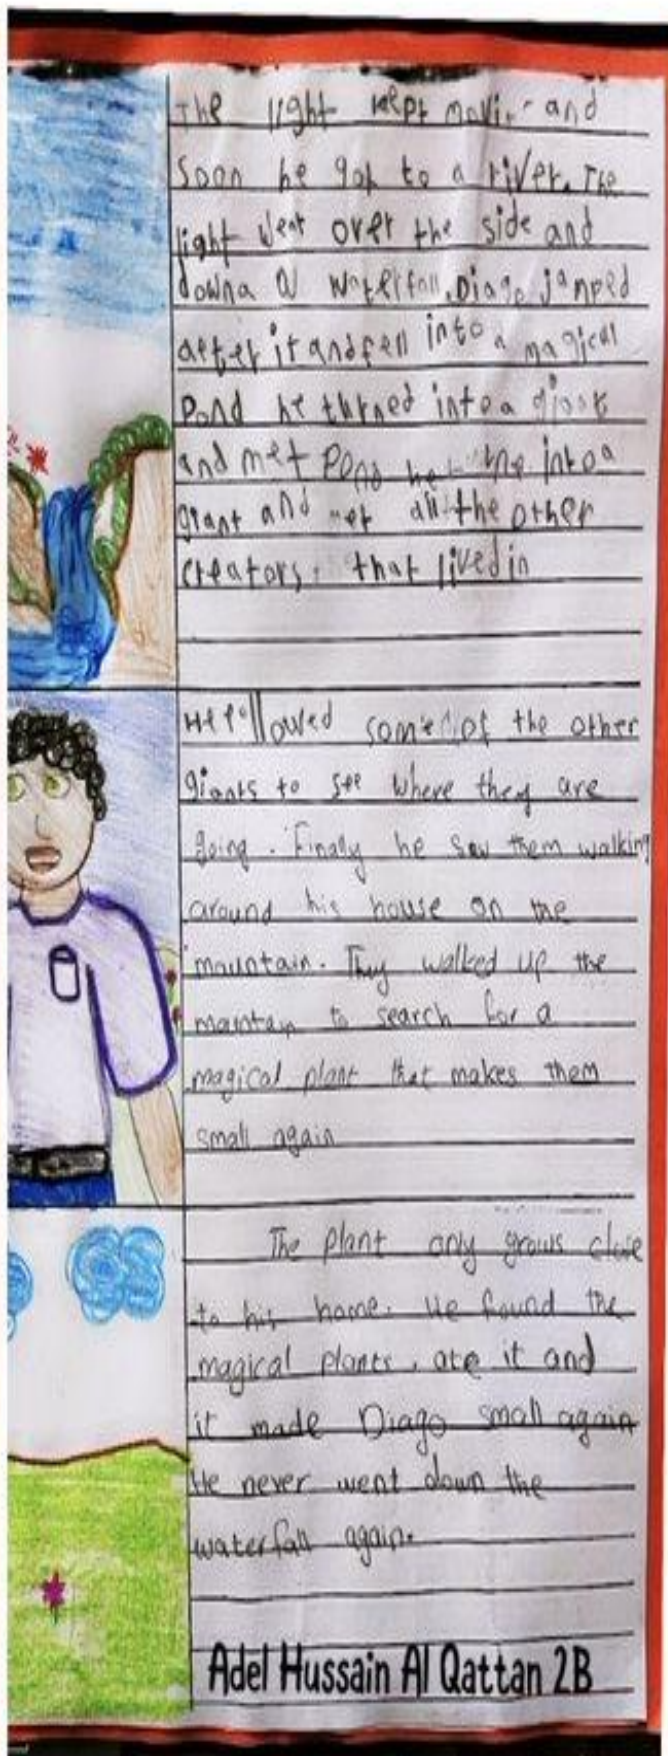 The light kept movin and
soon he got to a river. The
light went over the side and
downa a waterfall. Diago jamped
after it and fell into a magical
pond he turned into a giant
and met pond he the into a
giant and met all the other
creators. that lived in
He followed some of the other
giants to see where they are
going. Finaly he saw them walking
around his house on the
mauntain. They walked up the
mantan to search for a
magical plant that makes them
small again
The plant only grows close
to his home. He found the
magical plants, ate it and
it made Diago small again
He never went down the
waterfall again.
Adel Hussain Al Qattan 2B